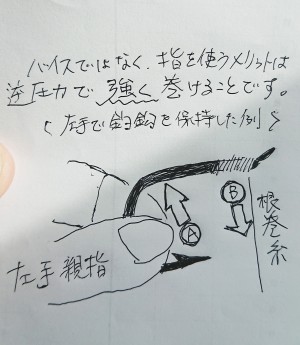 バイスではなく、指を使うメリットは
逆圧力で強く巻けることです。
(左手で釣鈎を保持した例)
B
A
左手親指
根巻糸